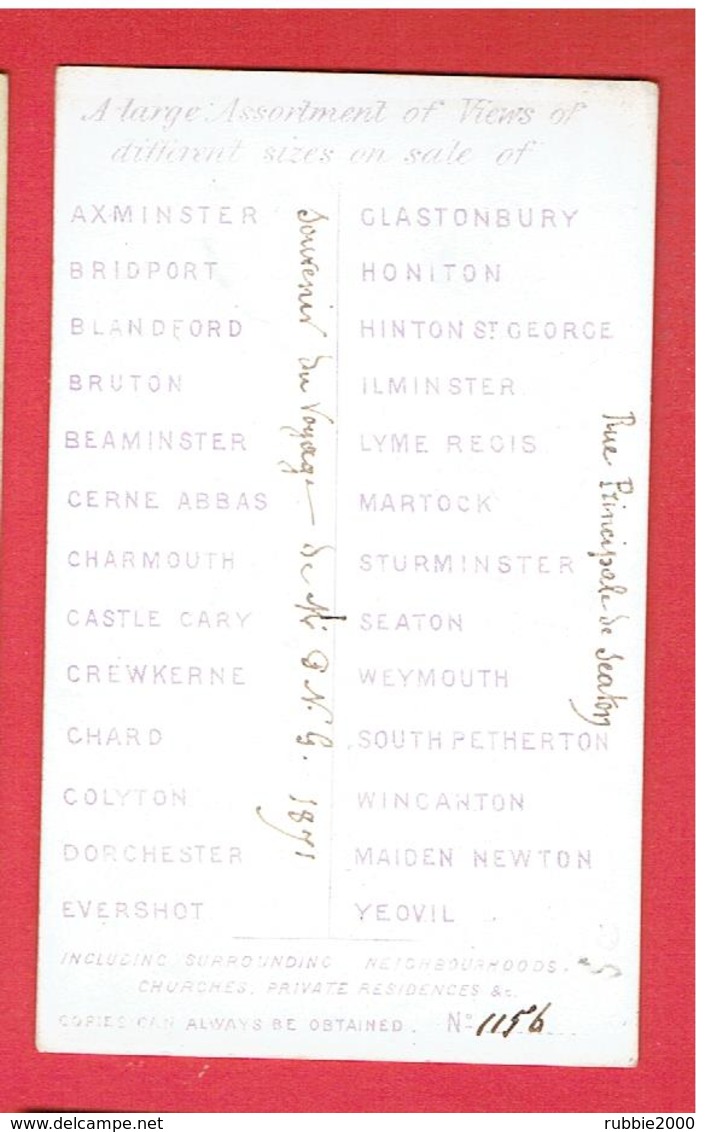 A large Assortment of Views of
different sizes on sale of
AXMINSTER
BRIDPORT
BLANDFORD
BRUTON
BEAMINSTER
CERNE ABBAS
CHARMOUTH
CASTLE CARY
CREWKERNE
CHARD
COLYTON
DORCHESTER
EVERSHOT
GLASTONBURY
HONITON
HINTON ST GEORGE
ILMINSTER
LYME REGIS
MARTOCK
STURMINSTER
SEATON
WEYMOUTH
SOUTH PETHERTON
WINCANTON
MAIDEN NEWTON
YEOVIL
INCLUDING SURROUNDING NEIGHBOURHOODS,
CHURCHES, PRIVATE RESIDENCES &c.
COPIES CAN ALWAYS BE OBTAINED. No 1156
Souvenir du Voyage de N. G. 1871
Rue Principale de Seaton
rubbie2000